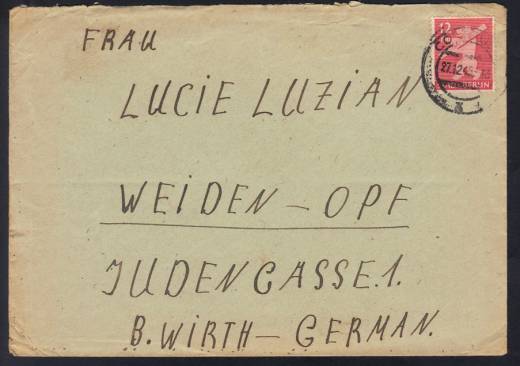 FRAU
12
27.12.45
BERLIN
LUCIE LUZIAN
WEIDEN – OPF
JUDENGASSE.1.
B. WIRTH – GERMAN.